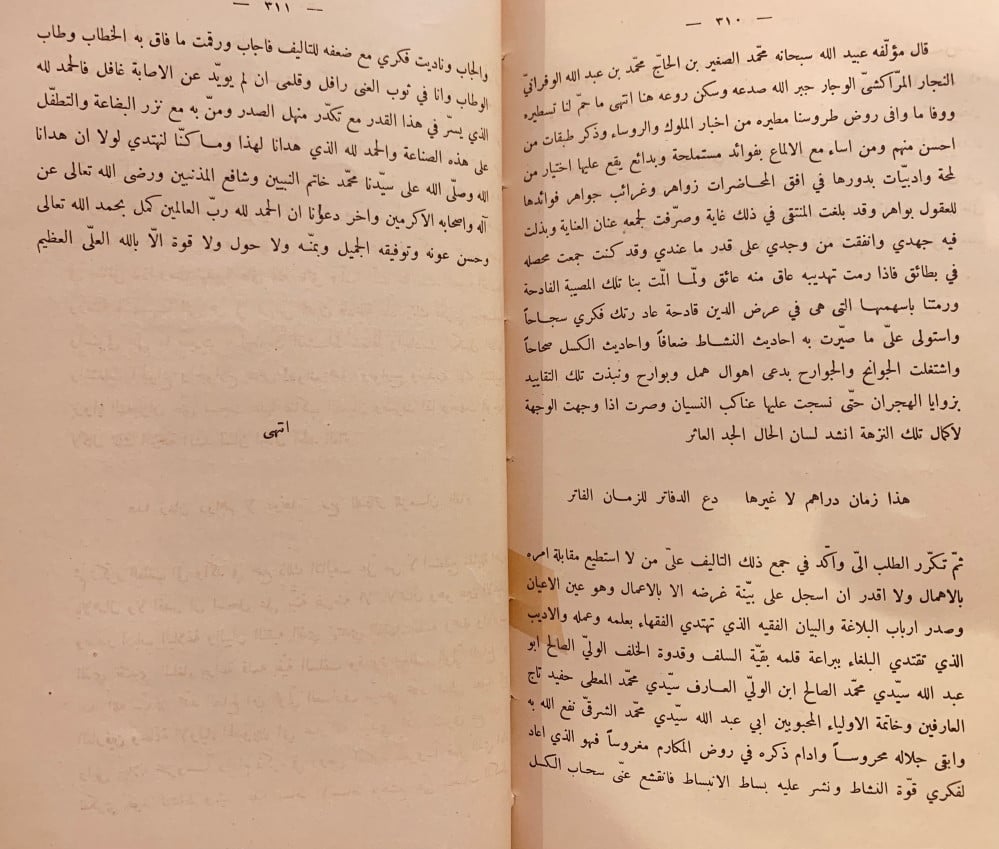 — ٣١٠ —
قال مؤلّفه عبيد الله سبحانه محمّد الصغير بن الحاجّ محمّد بن عبد الله الوفرانيّ
النجار المرّاكشيّ الوجار جبر الله صدعه وسكن روعه هنا انتهى ما حمّ لنا تسطيره
ووفا ما وافى روض طروسنا مطيره من اخبار الملوك والروساء وذكر طبقات من
احسن منهم ومن اساء مع الالماع بفوائد مستملحة وبدائع يقع عليها اختيار من
لمحة وادبيّات بدورها في افق المحاضرات زواهر وغرائب جواهر فوائدها
للعقول بواهر وقد بلغت المنتقى في ذلك غاية وصرّفت لجمعه عنان العناية وبذلت
فيه جهدي وانفقت من وجدي على قدر ما عندي وقد كنت جمعت محصله
في بطائق فاذا رمت تهذيبه عاق منه عائق ولمّا المّت بنا تلك المصيبة الفادحة
ورمتنا باسهمها التى هى في عرض الدين قادحة عاد رتك فكري سجاحاً
واستولى علىّ ما صيّرت به احاديث النشاط ضعافاً واحاديث الكسل صحاحاً
واشتغلت الجوانح والجوارح بدعى اهوال همل وبوارح ونبذت تلك التقاييد
بزوايا الهجران حتّى نسجت عليها عناكب النسيان وصرت اذا وجهت الوجهة
لاكمال تلك النزهة انشد لسان الحال الجد العاثر
هذا زمان دراهم لا غيرها دع الدفاتر للزمان الفاتر
ثمّ تكرّر الطلب الىّ وآكّد في جمع ذلك التاليف علىّ من لا استطيع مقابلة امره
بالاهمال ولا اقدر ان اسجل على بيّنة غرضه الا بالاعمال وهو عين الاعيان
وصدر ارباب البلاغة والبيان الفقيه الذي تهتدي الفقهاء بعلمه وعمله والاديب
الذي تقتدي البلغاء ببراعة قلمه بقيّة السلف وقدوة الخلف الوليّ الصالح ابو
عبد الله سيّدي محمّد الصالح ابن الوليّ العارف سيّدي محمّد المعطى حفيد تاج
العارفين وخاتمة الاولياء المحبوبين ابي عبد الله سيّدي محمّد الشرقيّ نفع الله به
وابقى جلاله محروساً وادام ذكره في روض المكارم مغروساً فهو الذي اعاد
لفكري قوّة النشاط ونشر عليه بساط الانبساط فانقشع عنّى سحاب الكسل
— ٣١١ —
وانجاب وناديت فكري مع ضعفه للتاليف فاجاب ورقمت ما فاق به الخطاب وطاب
الوطاب وانا في ثوب العنى رافل وقلمى ان لم يويّد عن الاصابة غافل فالحمد لله
الذي يسرّ في هذا القدر مع تكدّر منهل الصدر ومنّ به مع نزر البضاعة والتطفّل
على هذه الصناعة والحمد لله الذي هدانا لهذا وماكنّا لنهتدي لولا ان هدانا
الله وصلّى الله على سيّدنا محمّد خاتم النبيين وشافع المذنبين ورضى الله تعالى عن
آله واصحابه الأكرمين واخر دعوانا ان الحمد لله ربّ العالمين كمل بحمد الله تعالى
وحسن عونه وتوفيقه الجميل وبمنّه ولا حول ولا قوة الّا بالله العلّي العظيم
انتهى